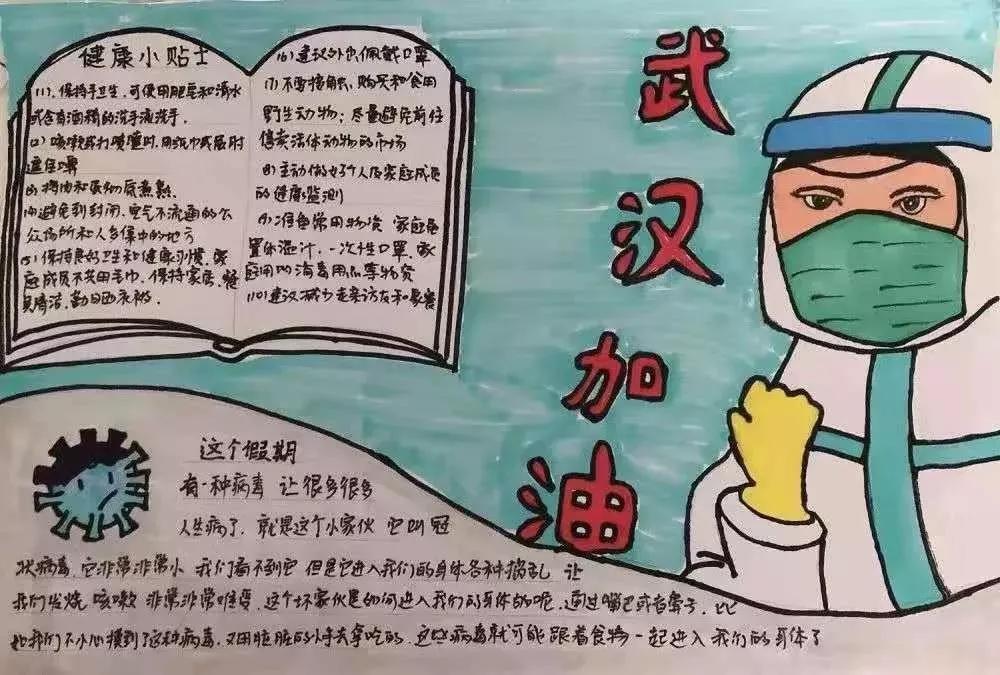 健康小贴士
(1). 保持手卫生. 可使用肥皂和清水
或含有酒精的洗手液洗手.
(2) 咳嗽或打喷嚏时. 用纸巾或屈肘
遮住口鼻
(3) 将肉和蛋彻底煮熟.
(4) 避免到封闭. 空气不流通的公
众场所和人多集中的地方
(5) 保持良好卫生和健康习惯. 家
庭成员不共用毛巾. 保持家居. 餐
具清洁. 勤晒衣被.
(6) 建议外出佩戴口罩
(7) 不要接触. 购买和食用
野生动物; 尽量避免前往
售卖活体动物的市场
(8) 主动做好个人及家庭成员
的健康监测
(9) 准备常用物资 家庭备
置体温计. 一次性口罩. 家
庭用的消毒用品等物资
(10) 建议减少走亲访友和聚餐
武汉加油
这个假期
有一种病毒 让很多很多
人生病了. 就是这个小家伙 它叫冠
状病毒. 它非常非常小 我们看不到它 但是它进入我们的身体各种捣乱 让
我们发烧 咳嗽 非常非常难受. 这个坏家伙是如何进入我们的身体的呢. 通过嘴巴或者鼻子. 比
如我们不小心摸到了这种病毒. 又用脏脏的小手去拿吃的. 这些病毒就可能跟着食物一起进入我们的身体了